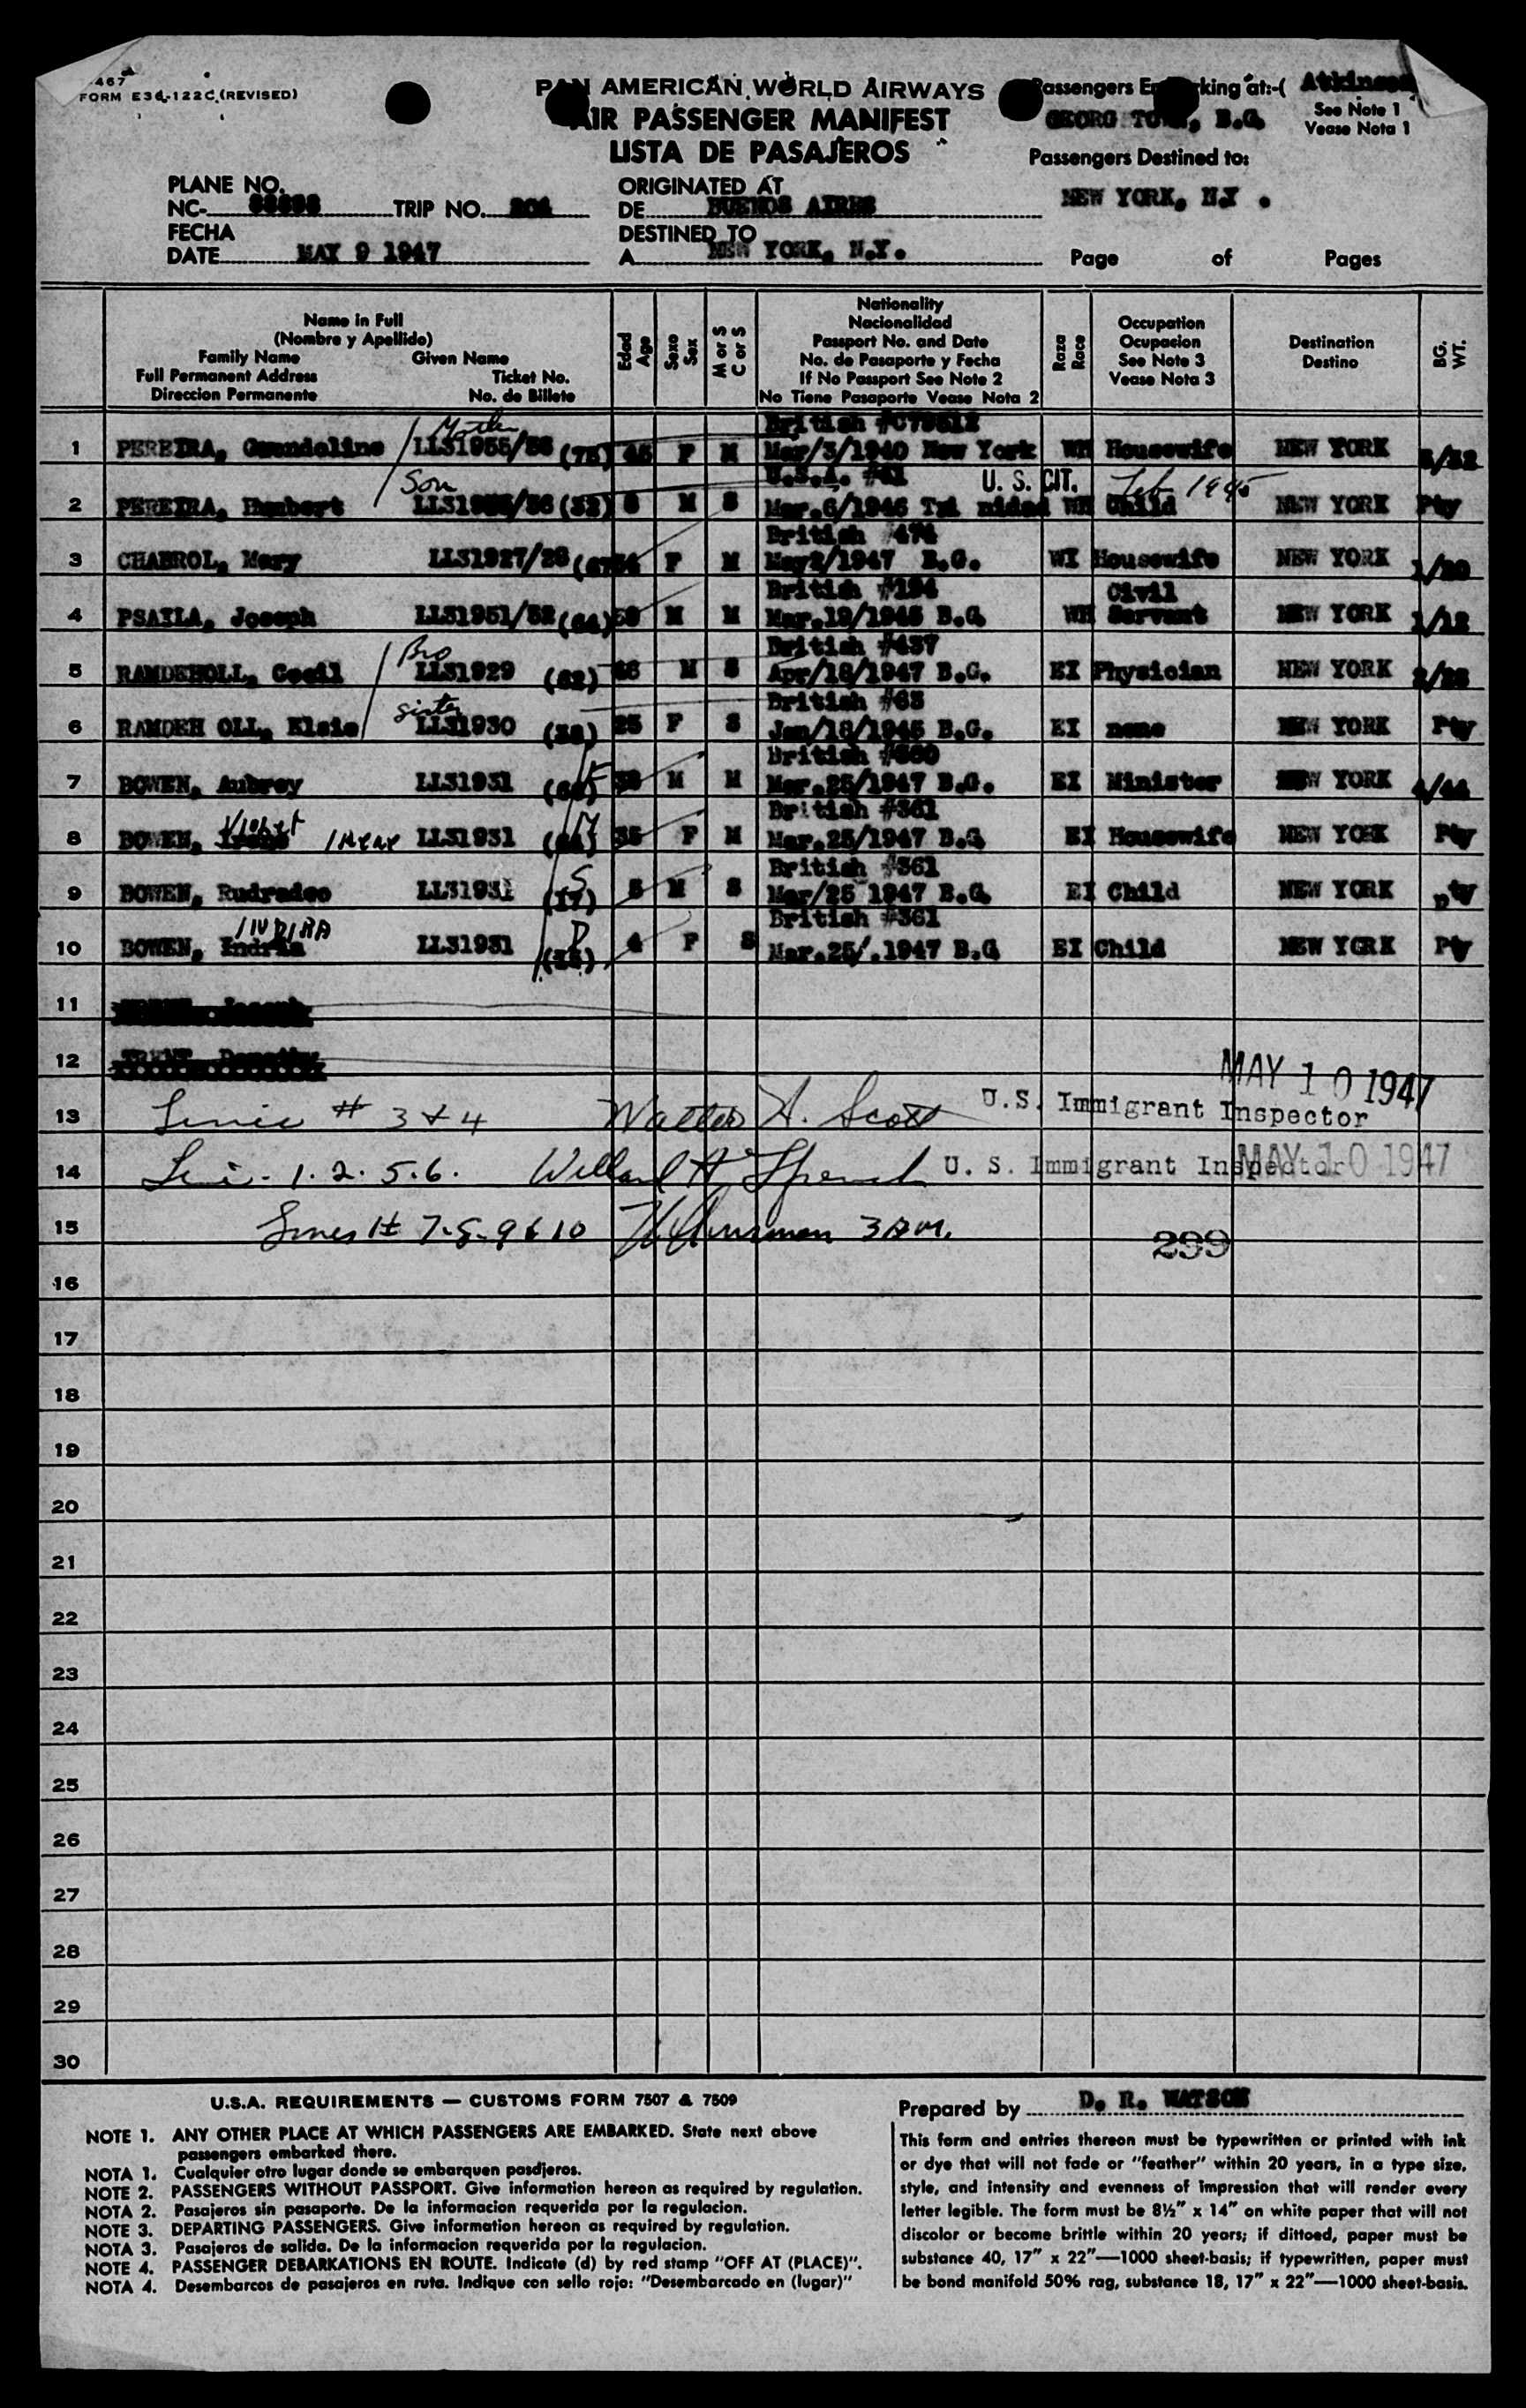 467
FORM E36-122C (REVISED)
PAN AMERICAN WORLD AIRWAYS
AIR PASSENGER MANIFEST
LISTA DE PASAJEROS
Passengers Embarking at:-( Atkinson
GEORG TOWN, B.G.
See Note 1
Vease Nota 1
Passengers Destined to:
NEW YORK, N.Y.
PLANE NO.
NC- TRIP NO. 204
ORIGINATED AT
DE BUENOS AIRES
FECHA
DATE MAY 9 1947
DESTINED TO
A NEW YORK, N.Y.
Page of Pages
Name in Full
(Nombre y Apellido)
Family Name Given Name
Full Permanent Address Ticket No.
Direccion Permanente No. de Billete
Edad
Age
Sexo
Sex
M or S
C or S
Nationality
Nacionalidad
Passport No. and Date
No. de Pasaporte y Fecha
If No Passport See Note 2
No Tiene Pasaporte Vease Nota 2
Raza
Race
Occupation
Ocupacion
See Note 3
Vease Nota 3
Destination
Destino
BG.
WT.
Mother British
1 PEREIRA, Gwendoline LL31955/56 F M Mar/3/1940 New York WH Housewife NEW YORK
Son U.S.A. #41 U. S. CIT. Feb 1945
2 PEREIRA, Humbert /56 (32) M S Mar.6/1946 WH Child NEW YORK Pty
British #474
3 CHABROL, Mary LL31927/28 F M May2/1947 B.G. WI Housewife NEW YORK 1/20
British #194 Civil
4 PSAILA, Joseph LL31951/52 (64) M M B.G WH Servant NEW YORK 1/12
Bro British #437
5 RAMDEHOLL, Cecil LL31929 (62) M S Apr/18/1947 B.G. EI Physician NEW YORK
sister British #63
6 RAMDEH OLL, Elsie LL31930 25 F S Jan/18/1945 B.G. EI none NEW YORK Pty
British #360
7 BOWEN, Aubrey LL31931 F M M Mar.25/1947 B.G. EI Minister NEW YORK 4/44
Violet British #361
8 BOWEN, Irene LL31931 M 35 F M Mar.25/1947 B.G EI Housewife NEW YORK Pty
British #361
9 BOWEN, Rudradeo LL31931 S (17) 5 M S Mar/25 1947 B.G. EI Child NEW YORK pty
INDIRA British #361
10 BOWEN, Indria LL31931 D 4 F S Mar.25/.1947 B.G EI Child NEW YORK Pty
11 Joseph
12 Dorothy
MAY 10 1947
13 # 3 & 4 Walter A. Scott U.S. Immigrant Inspector
14 1. 2. 5. 6. Willard H. U. S. Immigrant Inspector MAY 10 1947
15 Lines # 7-8-9 & 10 299
16
17
18
19
20
21
22
23
24
25
26
27
28
29
30
U.S.A. REQUIREMENTS — CUSTOMS FORM 7507 & 7509
NOTE 1. ANY OTHER PLACE AT WHICH PASSENGERS ARE EMBARKED. State next above
passengers embarked there.
NOTA 1. Cualquier otro lugar donde se embarquen pasdjeros.
NOTE 2. PASSENGERS WITHOUT PASSPORT. Give information hereon as required by regulation.
NOTA 2. Pasajeros sin pasaporte. De la informacion requerida por la regulacion.
NOTE 3. DEPARTING PASSENGERS. Give information hereon as required by regulation.
NOTA 3. Pasajeros de salida. De la informacion requerida por la regulacion.
NOTE 4. PASSENGER DEBARKATIONS EN ROUTE. Indicate (d) by red stamp "OFF AT (PLACE)".
NOTA 4. Desembarcos de pasajeros en ruta. Indique con sello rojo: "Desembarcado en (lugar)"
Prepared by D. R. WATSON
This form and entries thereon must be typewritten or printed with ink
or dye that will not fade or "feather" within 20 years, in a type size,
style, and intensity and evenness of impression that will render every
letter legible. The form must be 8½" x 14" on white paper that will not
discolor or become brittle within 20 years; if dittoed, paper must be
substance 40, 17" x 22"—1000 sheet-basis; if typewritten, paper must
be bond manifold 50% rag, substance 18, 17" x 22"—1000 sheet-basis.